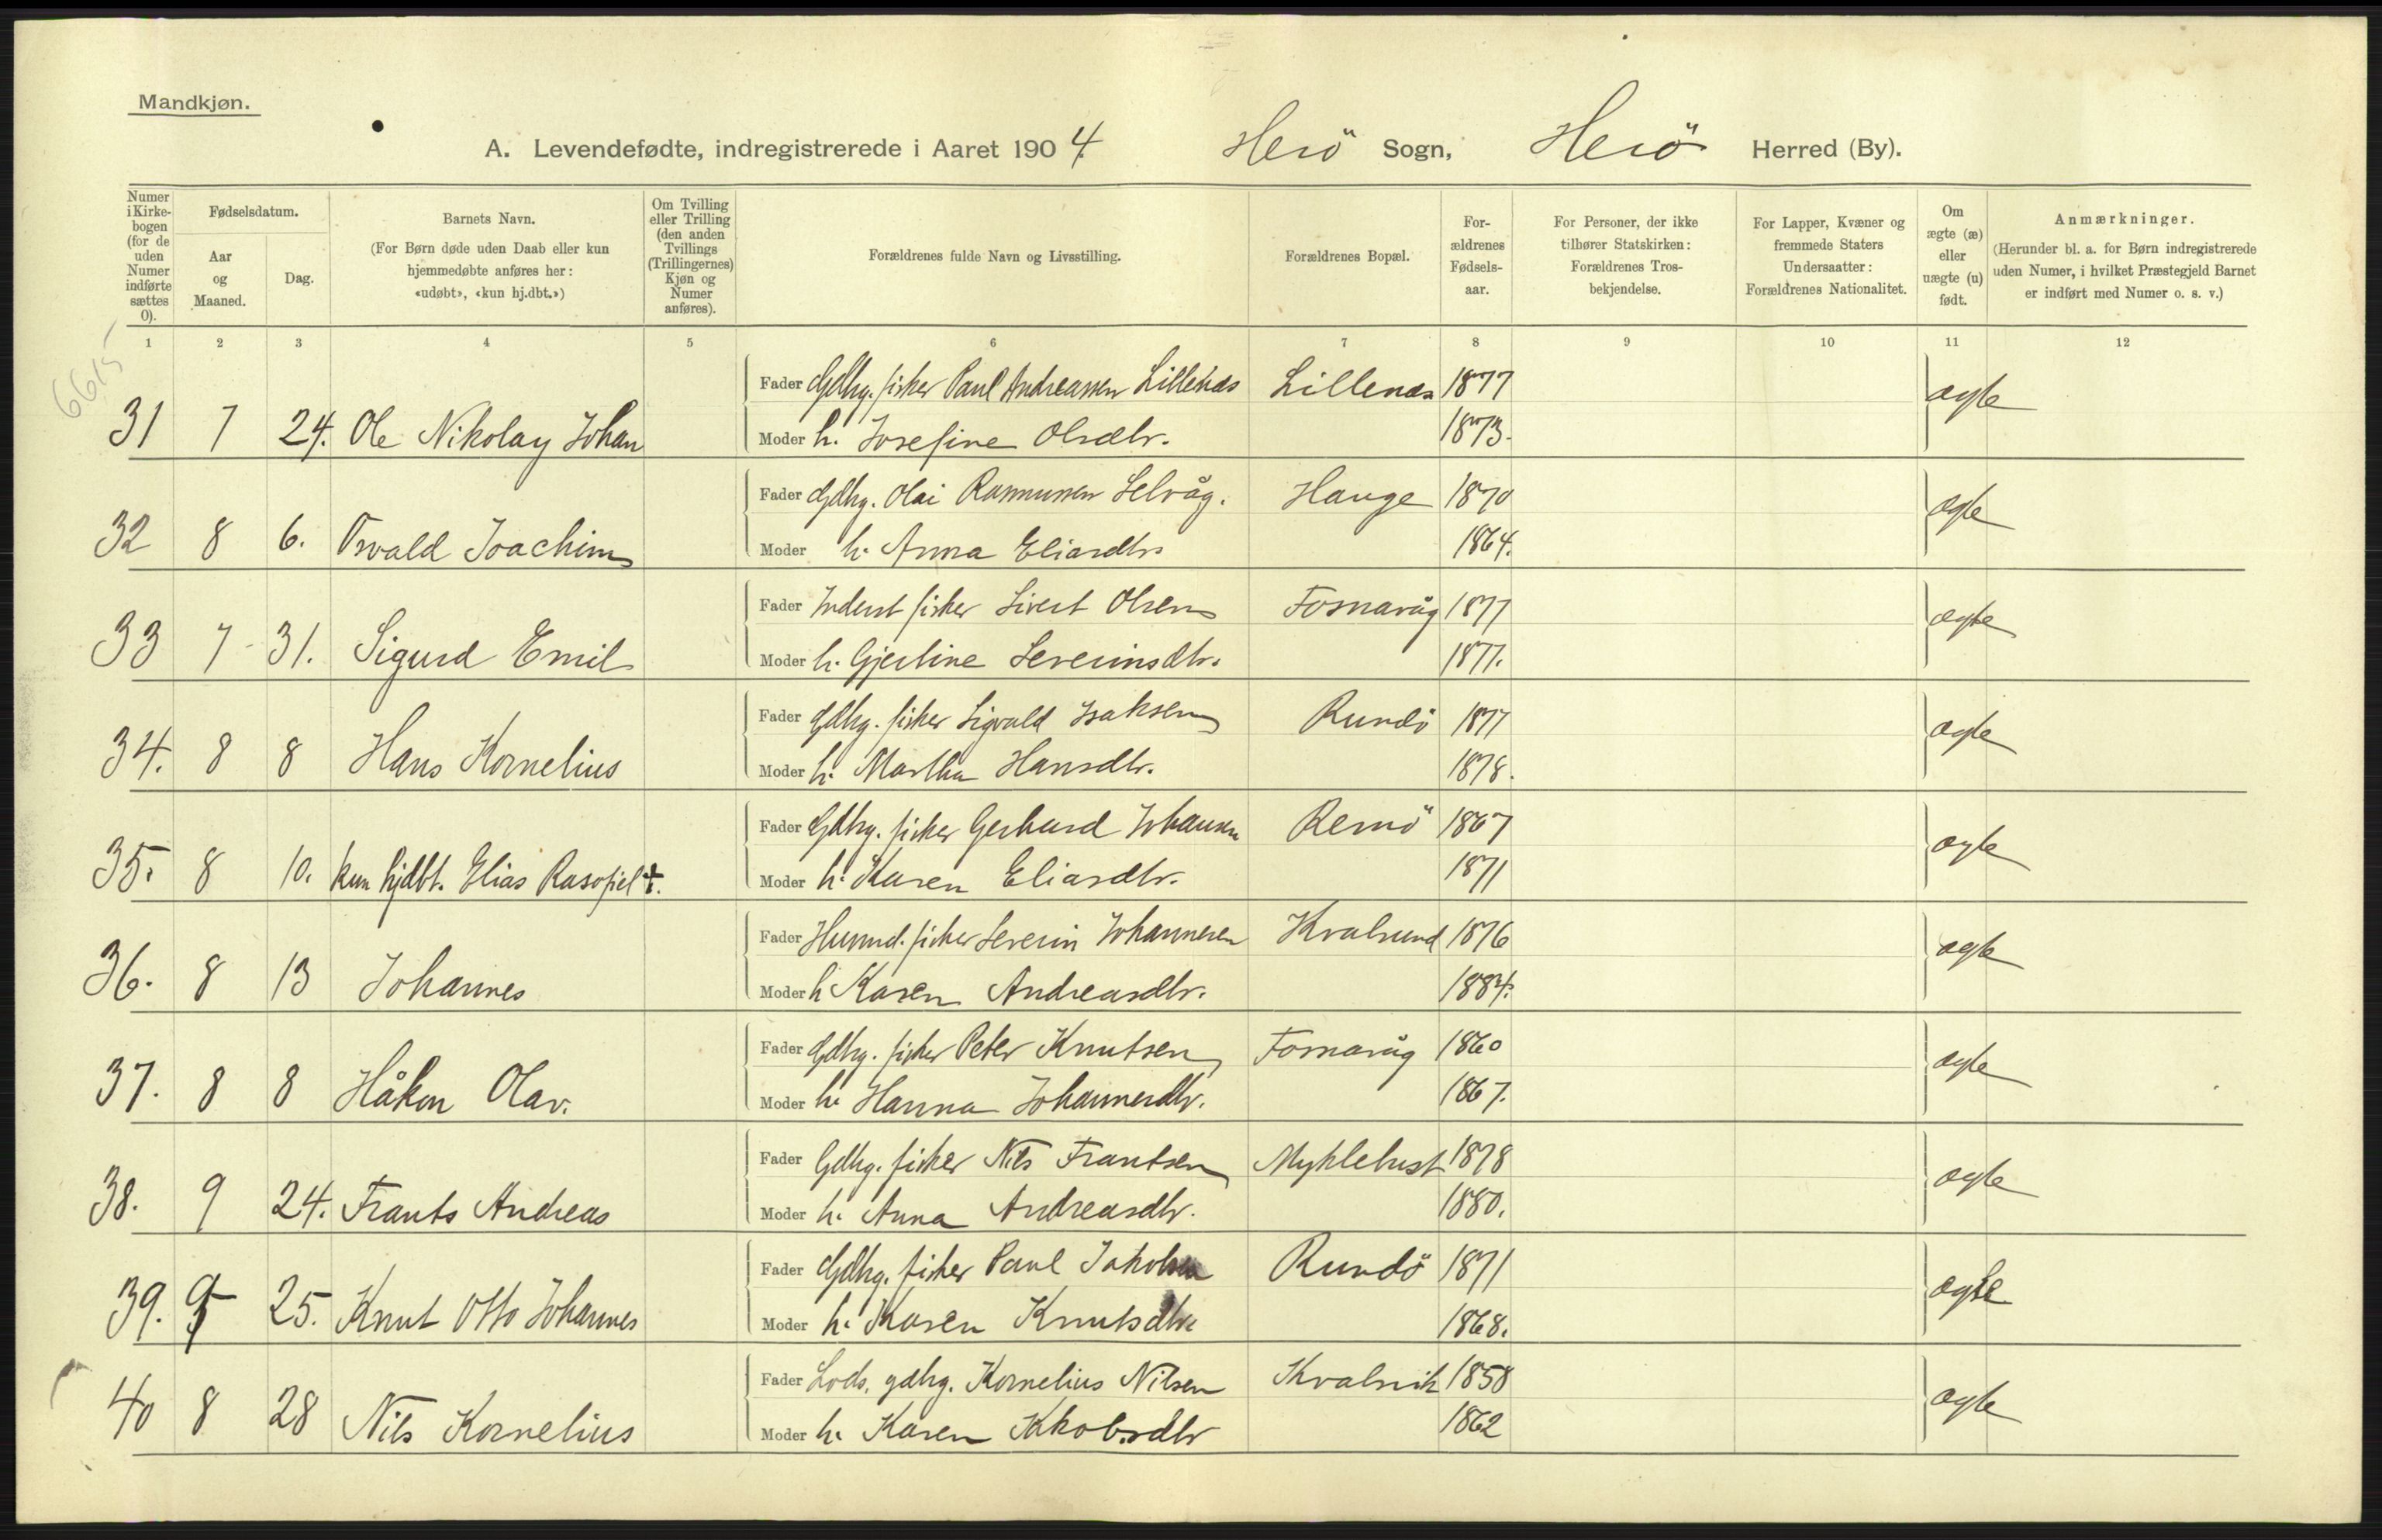 Mandkjøn.
A. Levendefødte, indregistrerede i Aaret 1904. Herö Sogn, Herö Herred (By).
Numer i Kirkebogen (for de uden Numer indførte sættes 0).
Fødselsdatum.
Aar og Maaned.
Dag.
Barnets Navn.
(For Børn døde uden Daab eller kun hjemmedøbte anføres her: «udøbt», «kun hj.dbt.»)
Om Tvilling eller Trilling (den anden Tvillings (Trillingernes) Kjøn og Numer anføres).
Forældrenes fulde Navn og Livsstilling.
Forældrenes Bopæl.
Forældrenes Fødselsaar.
For Personer, der ikke tilhører Statskirken: Forældrenes Trosbekjendelse.
For Lapper, Kvæner og fremmede Staters Undersaatter: Forældrenes Nationalitet.
Om ægte (æ) eller uægte (u) født.
Anmærkninger.
(Herunder bl. a. for Børn indregistrerede uden Numer, i hvilket Præstegjeld Barnet er indført med Numer o. s. v.)
1 2 3 4 5 6 7 8 9 10 11 12
6615
Fader Gdbrg. fisker Paul Andreassen Lillenæs Lillenæs 1877 ægte
31 7 24. Ole Nikolay Johan Moder h. Josefine Olsdtr. 1873.
Fader Gdbrg. Olai Rasmussen Selvåg. Hauge 1870 ægte
32 8 6. Osvald Joachim Moder h. Anna Eliasdtr. 1864.
Fader Inderst fisker Sivert Olsen Fosnavåg 1877 ægte
33 7 31. Sigurd Emil Moder h. Gjertine Severinsdtr. 1877.
Fader Gdbrg. fisker Sigvald Isaksen Rundö 1877 ægte
34. 8 8 Hans Kornelius Moder h. Martha Hansdtr. 1878.
Fader Gdbrg. fisker Gerhard Johansen Remö 1867 ægte
35. 8 10. kun hjdbt. Elias Moder h. Karen Eliasdtr. 1871
Fader Husmd. fisker Severin Johannesen Kvalsund 1876 ægte
36. 8 13 Johannes Moder h Karen Andreasdtr. 1884.
Fader Gdbrg. fisker Peter Knutsen Fosnavåg 1860 ægte
37. 8 8 Håkon Olav. Moder h. Hanna Johannesdtr. 1867.
Fader Gdbrg. fisker Nils Frantsen Myklebust 1878 ægte
38. 9 24. Frants Andreas Moder h. Anna Andreasdtr. 1880.
Fader Gdbrg. fisker Paul Jakobsen Rundö 1871 ægte
39. 9 25. Knut Otto Johannes Moder h. Karen Knutsdtr. 1868.
Fader Lods, gdbrg. Kornelius Nilsen Kvalsvik 1858 ægte
40 8 28 Nils Kornelius Moder h. Karen Jakobsdtr 1862